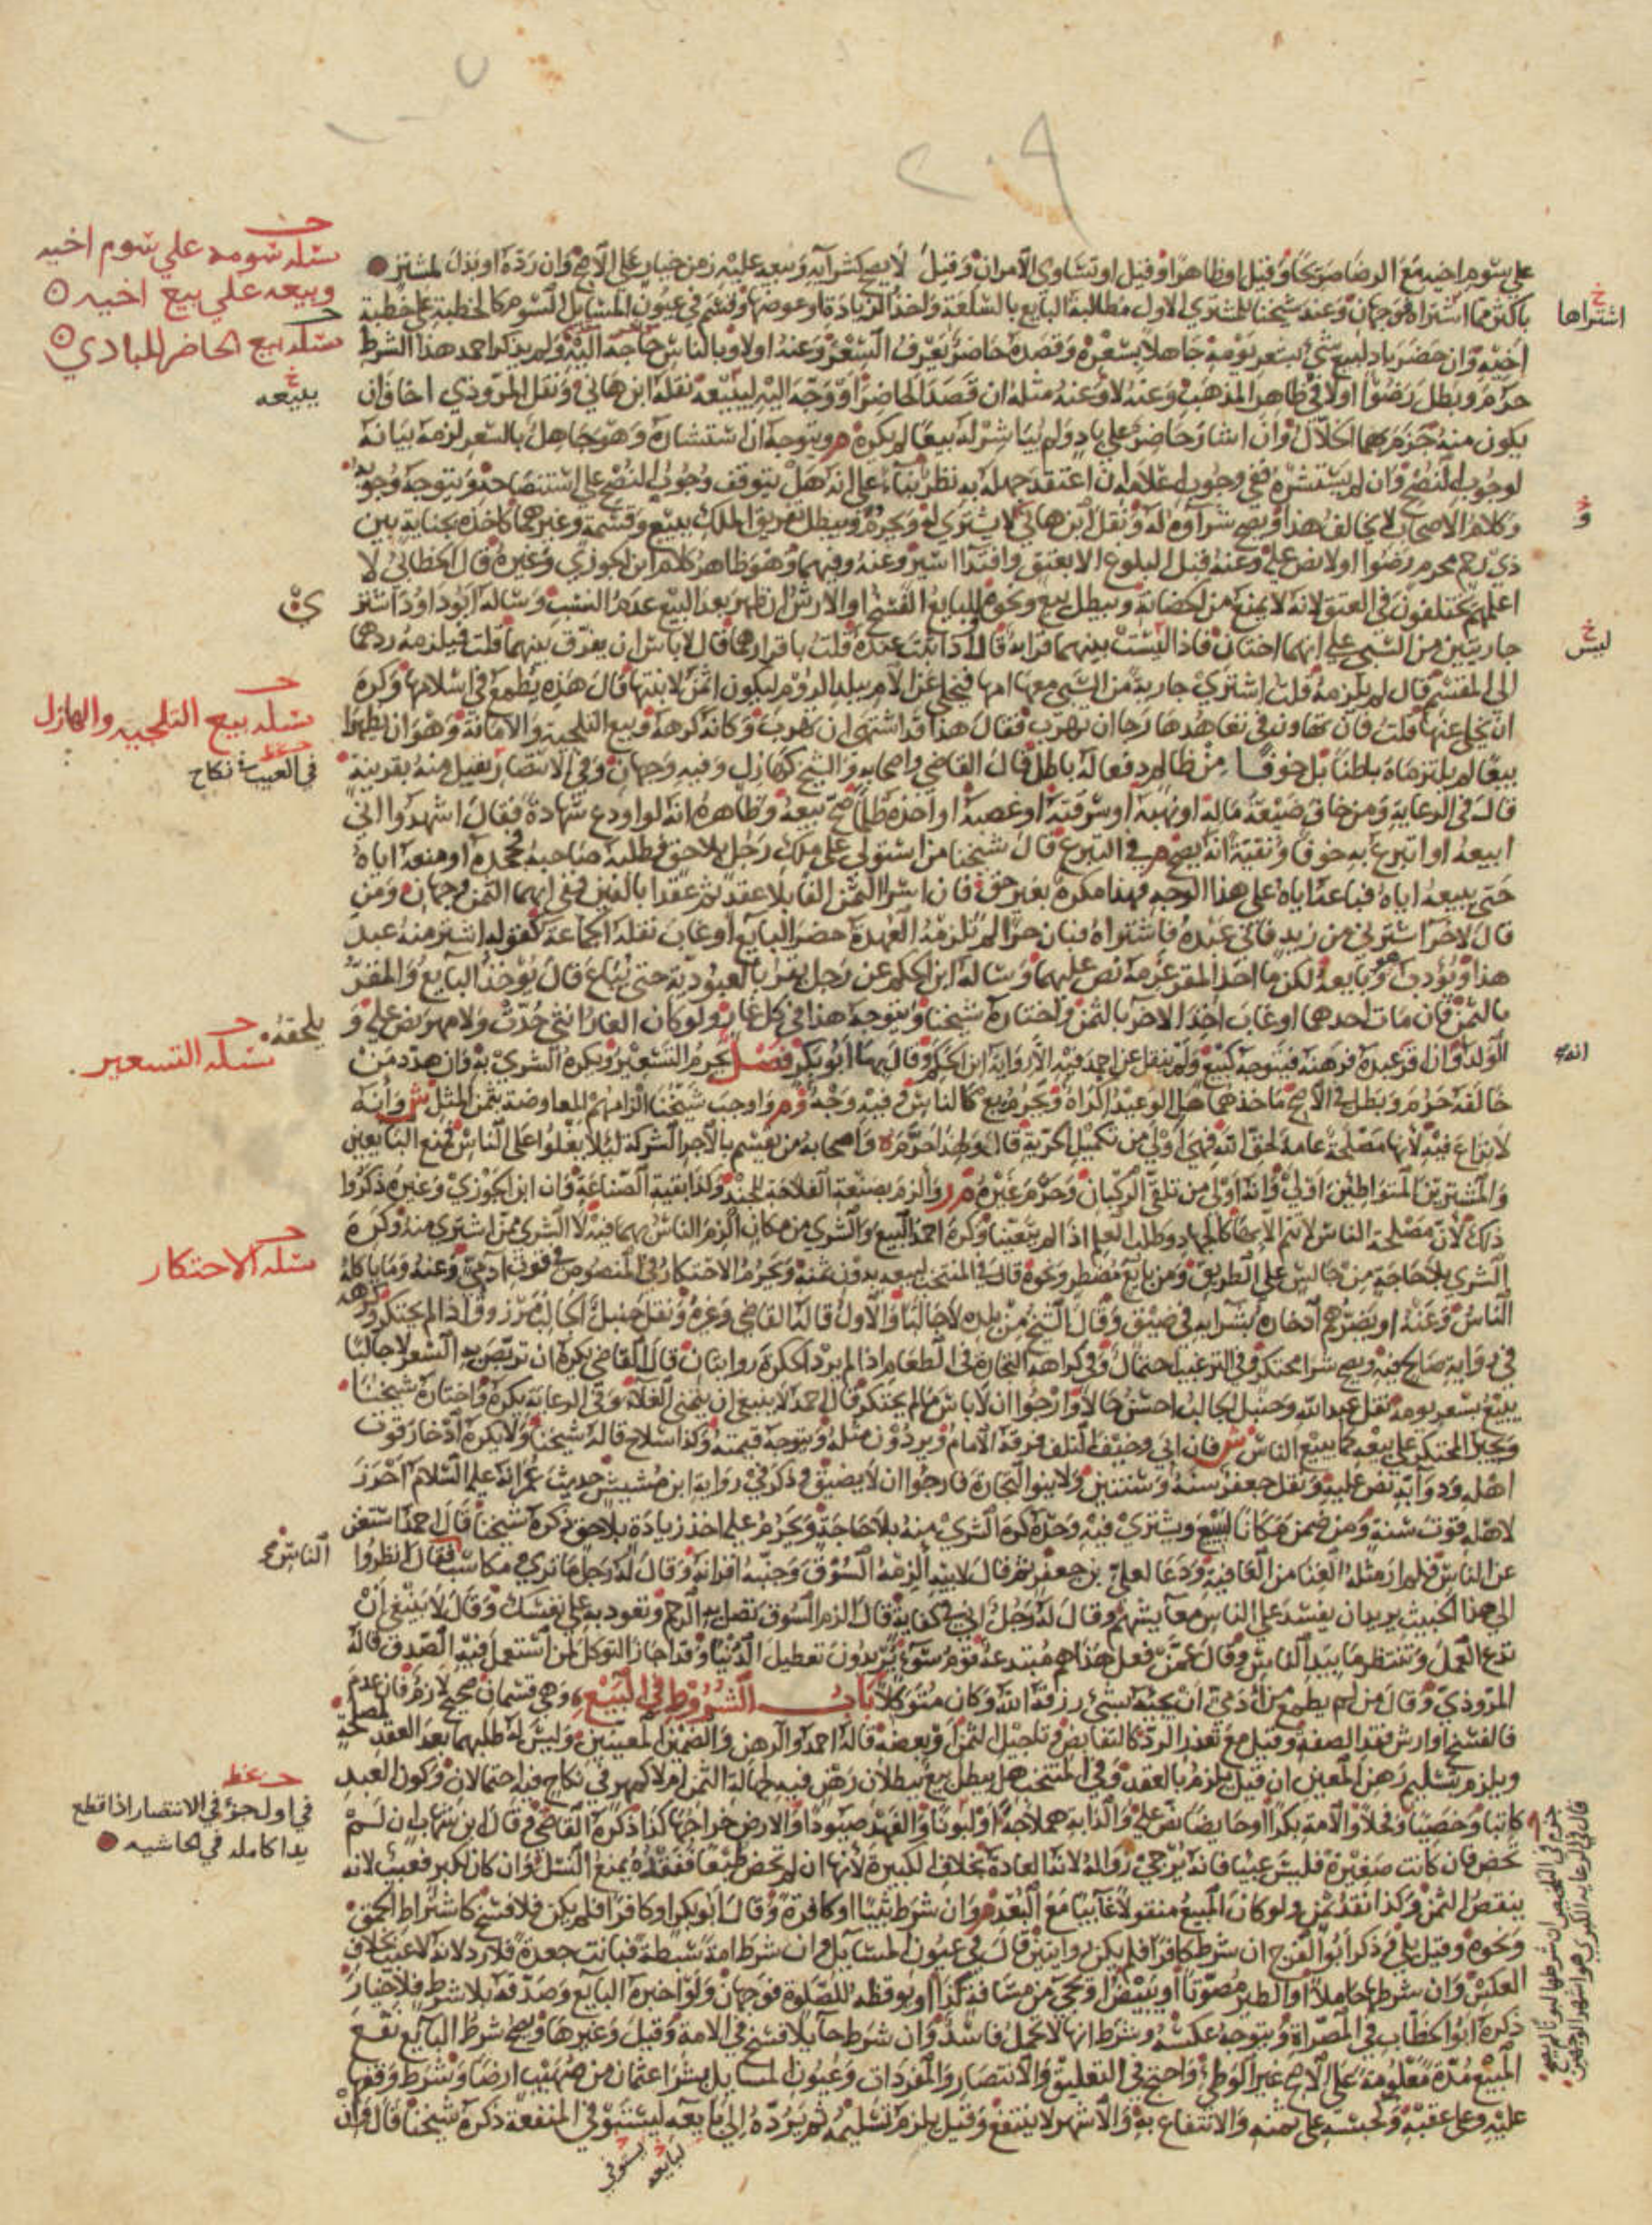 ٢٠٩
مسئلة سومه علي سوم اخيه
وبيعه علي بيع اخيه
مسئلة بيع الحاضر للبادي
يبيعه
خ
اشتراها
علي سوم اخيه مع الرضا صريحا وقيل او ظاهرا وقيل او تساوي الامران وقيل لا يصح كشرآيه وبيعه عليه زمن خيار علي الاصح وان رده او بذل لمشتر
باكثر مما اشتراه فوجهان وعند شيخنا للمشتري الاول مطالبة البايع بالسلعة واخذ الزيادة او عوضها وقيس في عيون المسايل السوم كالخطبة علي خطبة
اخيه وان حضر باد لبيع شي بسعر يومه جاهلا بسعره وقصده حاضر يعرف السعر وعنه اولا وبالناس حاجة اليه ولم يذكر احمد هذا الشرط
حرم وبطل رضوا اولا في ظاهر المذهب وعنه لا وعنه مثله ان قصد الحاضر او وجه اليه ليبيعه نقله ابن هاني ونقل المروذي اخاف ان
يكون منه جزم بهما الخلال وان اشار حاضر علي باد ولم يباشر له بيعا لم يكره ويتوجه ان استشاره وهو جاهل بالسعر لزمه بيانه
لوجوب النصح وان لم يستشره ففي وجوب اعلامه ان اعتقد جهله به نظر بناء علي انه هل يتوقف وجوب النصح علي استنصاحه ويتوجه وجوبه
وكلام الاصحاب لا يخالف هذا ويصح شرآوه له ونقل ابن هاني لا يشتري له ويحرم ويبطل تفريق الملك ببيع وقسمة وغيرهما كاخذه بجناية بين
ذي رحم محرم رضوا اولا نص عليه وعنه قبل البلوغ الا بعتق وافتدا اسير وعنه وفيهما وهو ظاهر كلام ابن الجوزي وغيره قال الخطابي لا
اعلمهم يختلفون في العتق لانه لا يمنع من الحضانة ويبطل بيع ونحوه وللبايع الفسخ او الارش ان ظهر بعد البيع عدم النسب وساله ابو داود اشتر
ليس
جاريتين من السبي علي انهما اختان فاذا ليست بينهما قرابة قال اذا ثبت عنده قلت باقرارهما قال لا باس ان يفرق بينهما قلت فيلزمه ردهما
الي المقسم قال لم يلزمه قلت اشتري جارية من السبي معها امها فيخلي عن الام ببلد الروم ليكون اثمن لابنتها قال هذه يطمع في اسلامها وكره
ان يخلي عنها قلت فان تهاون في تعاهدها رجا ان تهرب فقال هذا قد اشتهي ان تهرب وكانه كرهه وبيع التلجية والامانة وهو ان يظهرا
مسئلة بيع التلجيه والهازل
في العيب نكاح
بيعا لم يلتزماه باطنا بل خوفا من ظالم دفعا له باطل قال القاضي واصحابه والشيخ كهازل وفيه وجهان وفي الانتصار يقبل منه بقرينة
قال في الرعاية ومن خاف ضيعة ماله او نهبه او سرقته او غصبه او اخذه ظلما صح بيعه وظاهره انه لو اودع شهادة فقال اشهدوا اني
ابيعه او اتبرع به خوفا وتقية انه يصح في التبرع قال شيخنا من استولي علي ملك رجل بلا حق فطلبه صاحبه فجحده او منعه اياه
حتي يبيعه اياه فباعه اياه علي هذا الوجه فهذا مكره بغير حق فان اسرا الثمن الفا بلا عقد ثم عقدا بالفين ففي ايهما الثمن وجهان ومن
قال لاخر اشترني من زيد فاني عبده فاشتراه فبان حرا لم تلزمه العهدة حضر البايع او غاب نقله الجماعة كقوله اشتر منه عبده
هذا ويؤدب هو وبايعه لكن ما اخذ المقر غرمه نص عليهما وساله ابن الحكم عن رجل يقر بالعبودية حتي يباع قال يوخذ البايع والمقر
بالثمن فان مات احدهما او غاب اخذ الاخر بالثمن واختاره شيخنا ويتوجه هذا في كل غار ولو كان الغار انثي حدت ولا مهر نص عليه و
يلحقه
الولد وان اقر عبده فرهنه فيتوجه كبيع ولم ينقل عن احمد فيه الا رواية ابن الحكم وقال بها ابو بكر فصل يحرم التسعير ويكره الشري به وان هدد من
مسئلة التسعير
خالفه حرم وبطل في الاصح ماخذهما هل الوعيد اكراه ويحرم بع كالناس وفيه وجه واوجب شيخنا الزامهم المعاوضة بثمن المثل وانه
لا نزاع فيه لانها مصلحة عامة لحق الله فهي اولي من تكميل الحرية قال ولهذا حرم واصحابه من يقسم بالاجر الشركة ليلا يغلوا علي الناس فمنع البايعين
والمشترين المتواطيين اولي وانه اولي من تلقي الركبان وحرم غيره والزم بصنعة الفلاحة للجند وكذا بقية الصناعة وان ابن الجوزي وغيره ذكروا
ذلك لان مصلحة الناس لا تتم الا بها كالجهاد وطلب العلم اذا لم يتعينا وكره احمد البيع والشري من مكان الزم الناس بهما فيه لا الشري ممن اشتري منه وكره
الشري بلا حاجة من جالس علي الطريق ومن بايع مضطر ونحوه قال في المنتخب لبيعه بدون ثمنه ويحرم الاحتكار في المنصوص في قوت ادمي وعنه وما ياكله
مسئلة الاحتكار
الناس وعنه او يضرهم ادخاره بشرايه في ضيق وقال الشيخ من بلده لا جالبا والاول قاله القاضي وغيره ونقل حنبل الجالب مرزوق اذا لم يحتكر وكرهه
في رواية صالح فيه ويصح شرا محتكر وفي الترغيب احتمال وفي كراهة التجارة في الطعام اذا لم يرد الحكرة روايتان قال القاضي يكره ان تربص به السعر لا جالبا
يبيع بسعر يومه نقل عبد الله وحنبل الجالب احسن حالا وارجوا ان لا باس ما لم يحتكر وقال احمد لا ينبغي ان يتمني الغلاء وفي الرعاية يكره واختاره شيخنا
ويجبر المحتكر علي بيعه كما يبيع الناس فان ابي وخيف التلف فرقه الامام ويردون مثله ويتوجه قيمته وكذا سلاح قاله شيخنا ولا يكره ادخار قوت
اهله ودوابه نص عليه ونقل جعفر سنة وسنتين ولا ينوا التجارة فارجوا ان لا يضيق وذكر في رواية ابن مشيش حديث عمر انه عليه السلام احرز
لاهله قوت سنة ومن ضمن مكانا ليبيع ويشتري فيه وحده كره الشري منه بلا حاجة ويحرم عليه اخذ زيادة بلا حق ذكره شيخنا قال احمد استغن
الناس
عن الناس فلم ار مثله الغنا من العافية ودعا لعلي بن جعفر ثم قال لابيه الزمه السوق وجنبه اقرانه وقال له رجل ما تري مكاسب فقال انظروا
الي هذا الخبيث يريد ان يفسد علي الناس معايشهم وقال له رجل اني في كفاية قال الزم السوق تصل به الرحم وتعود به علي نفسك وقال لا ينبغي ان
تدع العمل وتنتظر ما بيد الناس وقال عمن فعل هذا هم مبتدعة قوم سوء يريدون تعطيل الدنيا وقد اجاز التوكل لمن استعمل فيه الصدق قاله
المروذي وقال من لم يطمع من ادمي ان يجيه بشي رزقه الله وكان متوكلا باب الشروط في البيع وهي قسمان صحيح لازم فان عدم
فالفسخ او ارش فقد الصفة وقيل مع تعذر الرد كالتقابض وتاجيل الثمن او بعضه قاله احمد والرهن والضمين المعينين وليس له طلبهما بعد العقد لمصلحة
ويلزم بتسليم رهن المعين ان قيل يلزم بالعقد وفي المنتخب هل يبطل بيع ببطلان رهن فيه لجهالة الثمن ام لا كمهر في نكاح فيه احتمالان وكون العبد
في اول جزؤ في الانتصار اذا قطع
يدا كامله في الحاشيه
كاتبا وخصيا وفحلا والامة بكرا او حايضا نص عليه والدابة هملاجة او لبونا والفهد صيودا والارض خراجها كذا ذكره القاضي وقال ابن شهاب ان لم
تحض فان كانت صغيرة فليس عيبا فانه يرجي زواله لانه العادة بخلاف الكبيرة لانها ان لم تحض طبعا ففقده يمنع النسل وان كان لكبر فعيب لانه
ينقص الثمن وكذا نقد ثمن ولو كان المبيع منقولا غايبا مع البعد وان شرط ثيبا او كافرة وقال ابو بكر او كافرا فلم يكن فلا فسخ كاشتراط الحمق
ونحوه وقيل بلي وذكر ابو الفرج ان شرط كافرا فلم يكن روايتين قال في عيون المسايل وان شرط امة سبطة فبانت جعدة فلا رد لانه لا عيب بخلاف
العكس وان شرطها حاملا او الطير مصوتا او يبيض او يجي من مسافة كذا او يوقظه للصلوة فوجهان ولو اخبره البايع وصدقه بلا شرط فلا خيار
ذكره ابو الخطاب في المصراة ويتوجه عكسه وشرط انها لا تحمل فاسد وان شرط حايلا فسخ في الامة وقيل وغيرها ويصح شرط البايع نفع
المبيع مدة معلومة علي الاصح غير الوطي واحتج في التعليق والانتصار والمفردات وعيون المسايل بشرا عثمان من صهيب ارضا وشرط وقفها
عليه وعلي عقبه وكحبسه علي ثمنه والانتفاع به والاشهر لا ينتفع وقيل يلزم تسليمه ثم يرده الي بايعه ليستوفي المنفعة ذكره شيخنا قال وان
لبايعه يستوفي